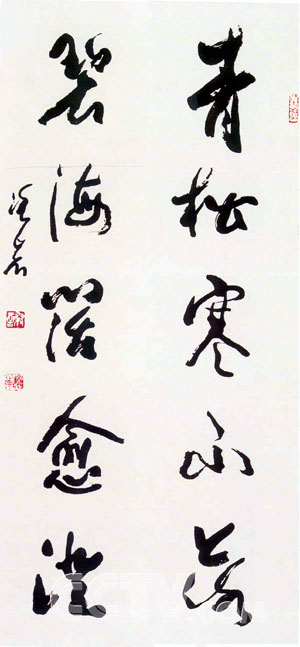 青松寒不落
碧海阔愈澄
CCTV